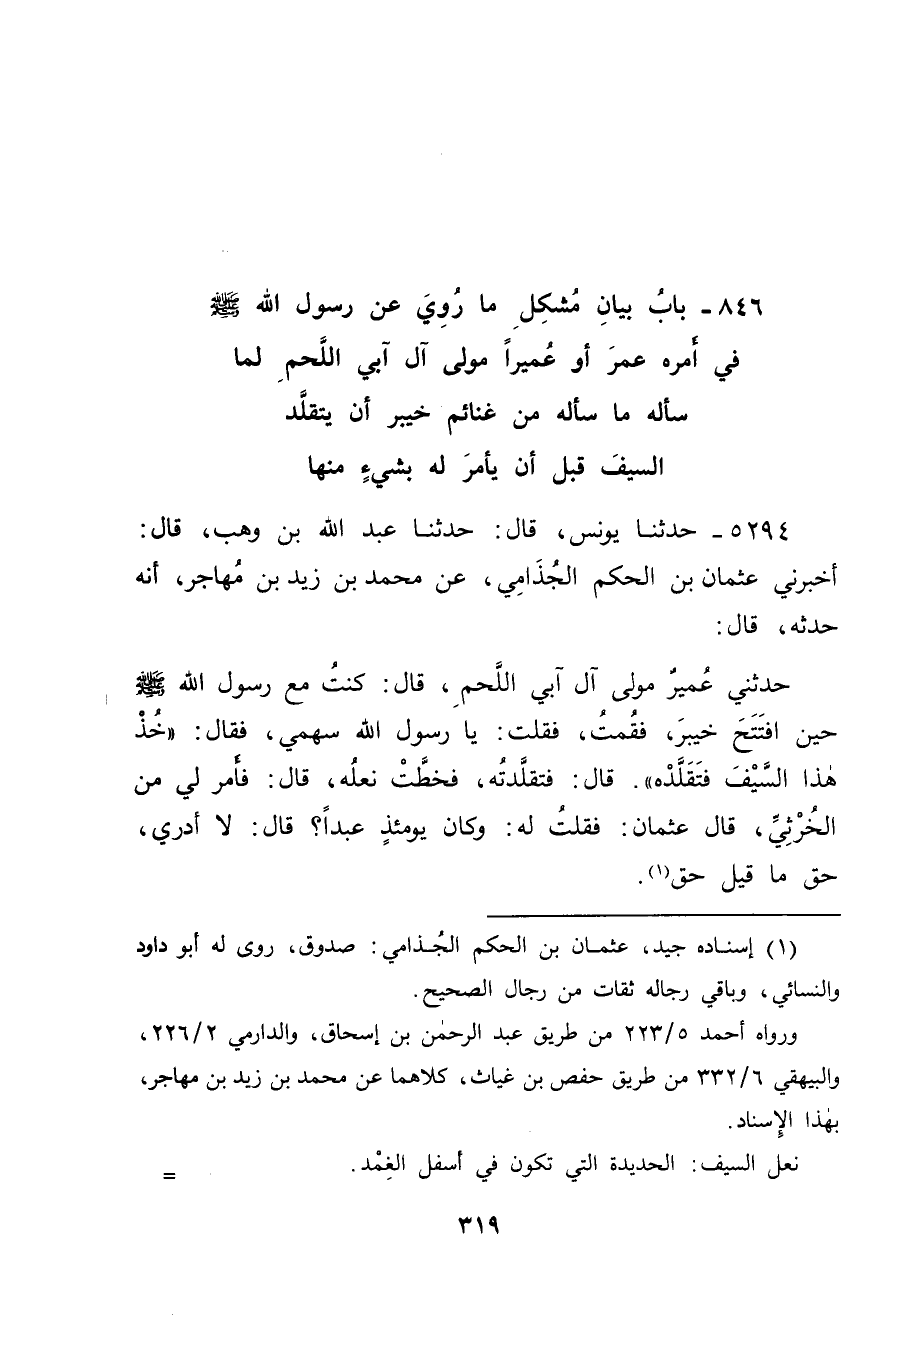 ٨٤٦ ـ بابُ بيانِ مُشكِلِ ما رُوِيَ عن رسول الله ﷺ
في أَمره عمرَ أو عُميراً مولى آل آبي اللَّحمِ لما
سأله ما سأله من غنائم خيبر أن يتقلَّد
السيفَ قبل أن يأمرَ له بشيءٍ منها
٥٢٩٤ ـ حدثنا يونس، قال: حدثنا عبد الله بن وهب، قال:
أخبرني عثمان بن الحكم الجُذَامِي، عن محمد بن زيد بن مُهاجر، أنه
حدثه، قال:
حدثني عُميرٌ مولى آل آبي اللَّحمِ، قال: كنتُ مع رسول الله ﷺ
حين افتَتَحَ خيبرَ، فقُمتُ، فقلت: يا رسول الله سهمي، فقال: «خُذْ
هٰذا السَّيْفَ فتَقَلَّدْه». قال: فتقلَّدتُه، فخطَّتْ نعلُه، قال: فأَمر لي من
الخُرْثِيِّ، قال عثمان: فقلتُ له: وكان يومئذٍ عبداً؟ قال: لا أدري،
حق ما قيل حق(١).
(١) إسناده جيد، عثمان بن الحكم الجُذامي: صدوق، روى له أبو داود
والنسائي، وباقي رجاله ثقات من رجال الصحيح.
ورواه أحمد ٢٢٣/٥ من طريق عبد الرحمٰن بن إسحاق، والدارمي ٢٢٦/٢،
والبيهقي ٣٣٢/٦ من طريق حفص بن غياث، كلاهما عن محمد بن زيد بن مهاجر،
بهٰذا الإِسناد.
نعل السيف: الحديدة التي تكون في أسفل الغِمْد. =
٣١٩